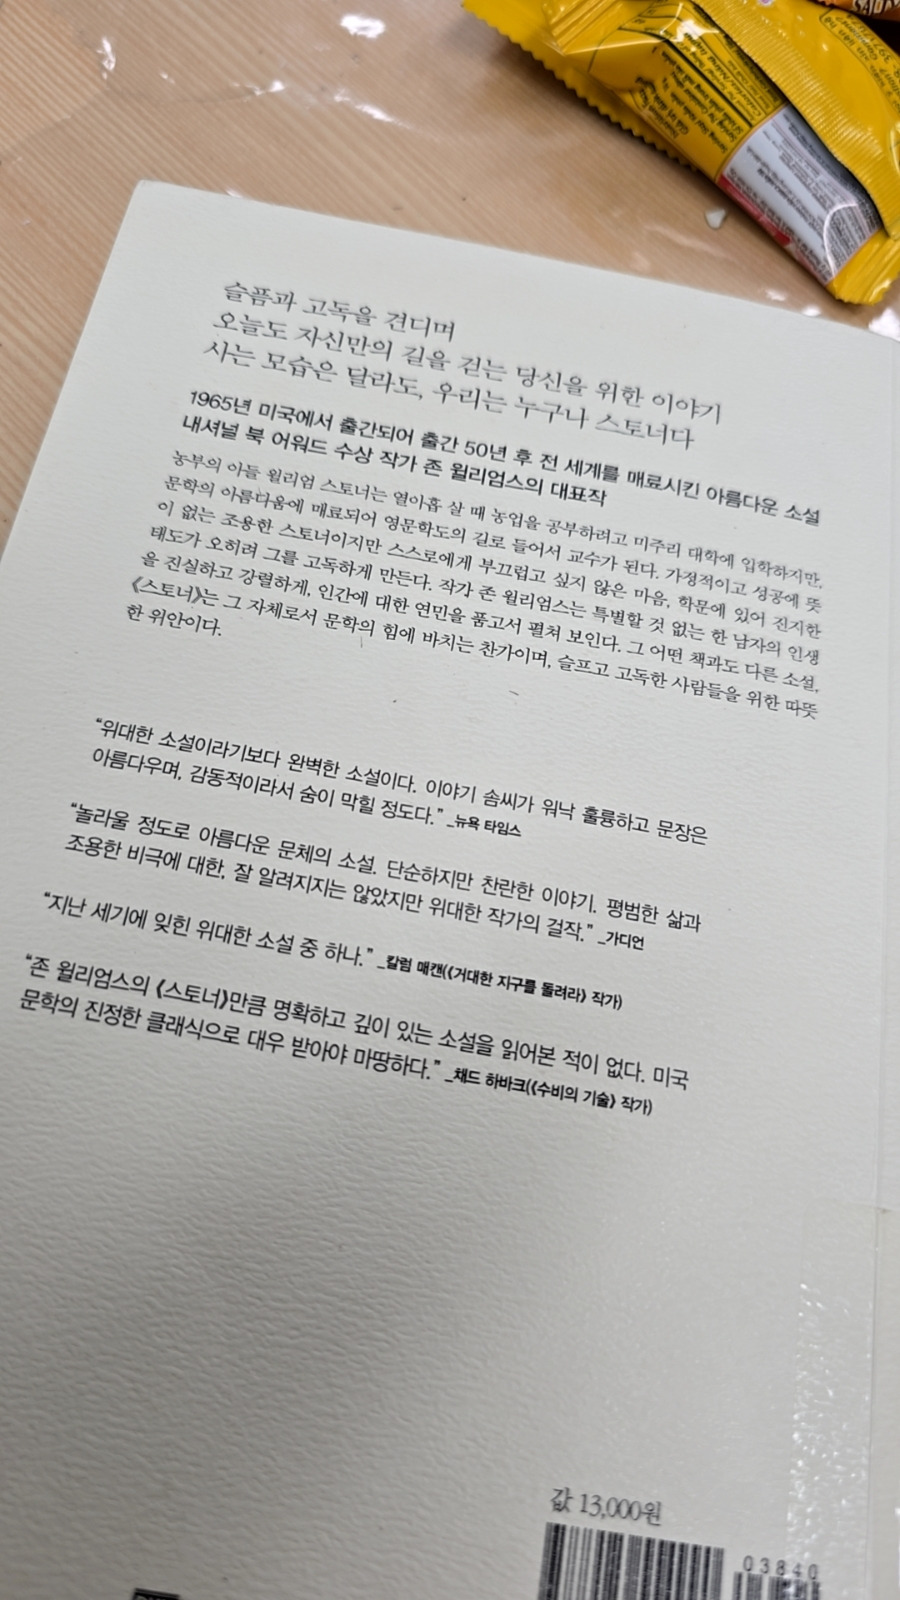 슬픔과 고독을 견디며
오늘도 자신만의 길을 걷는 당신을 위한 이야기
사는 모습은 달라도, 우리는 누구나 스토너다
1965년 미국에서 출간되어 출간 50년 후 전 세계를 매료시킨 아름다운 소설
내셔널 북 어워드 수상 작가 존 윌리엄스의 대표작
농부의 아들 윌리엄 스토너는 열아홉 살 때 농업을 공부하려고 미주리 대학에 입학하지만,
문학의 아름다움에 매료되어 영문학도의 길로 들어서 교수가 된다. 가정적이고 성공에 뜻
이 없는 조용한 스토너이지만 스스로에게 부끄럽고 싶지 않은 마음, 학문에 있어 진지한
태도가 오히려 그를 고독하게 만든다. 작가 존 윌리엄스는 특별할 것 없는 한 남자의 인생
을 진실하고 강렬하게, 인간에 대한 연민을 품고서 펼쳐 보인다. 그 어떤 책과도 다른 소설,
《스토너》는 그 자체로서 문학의 힘에 바치는 찬가이며, 슬프고 고독한 사람들을 위한 따뜻
한 위안이다.
“위대한 소설이라기보다 완벽한 소설이다. 이야기 솜씨가 워낙 훌륭하고 문장은
아름다우며, 감동적이라서 숨이 막힐 정도다.” _뉴욕 타임스
“놀라울 정도로 아름다운 문체의 소설. 단순하지만 찬란한 이야기. 평범한 삶과
조용한 비극에 대한, 잘 알려지지는 않았지만 위대한 작가의 걸작.” _가디언
“지난 세기에 잊힌 위대한 소설 중 하나.” _칼럼 매캔(《거대한 지구를 돌려라》 작가)
“존 윌리엄스의 《스토너》만큼 명확하고 깊이 있는 소설을 읽어본 적이 없다. 미국
문학의 진정한 클래식으로 대우 받아야 마땅하다.” _채드 하바크(《수비의 기술》 작가)
값 13,000원
03840